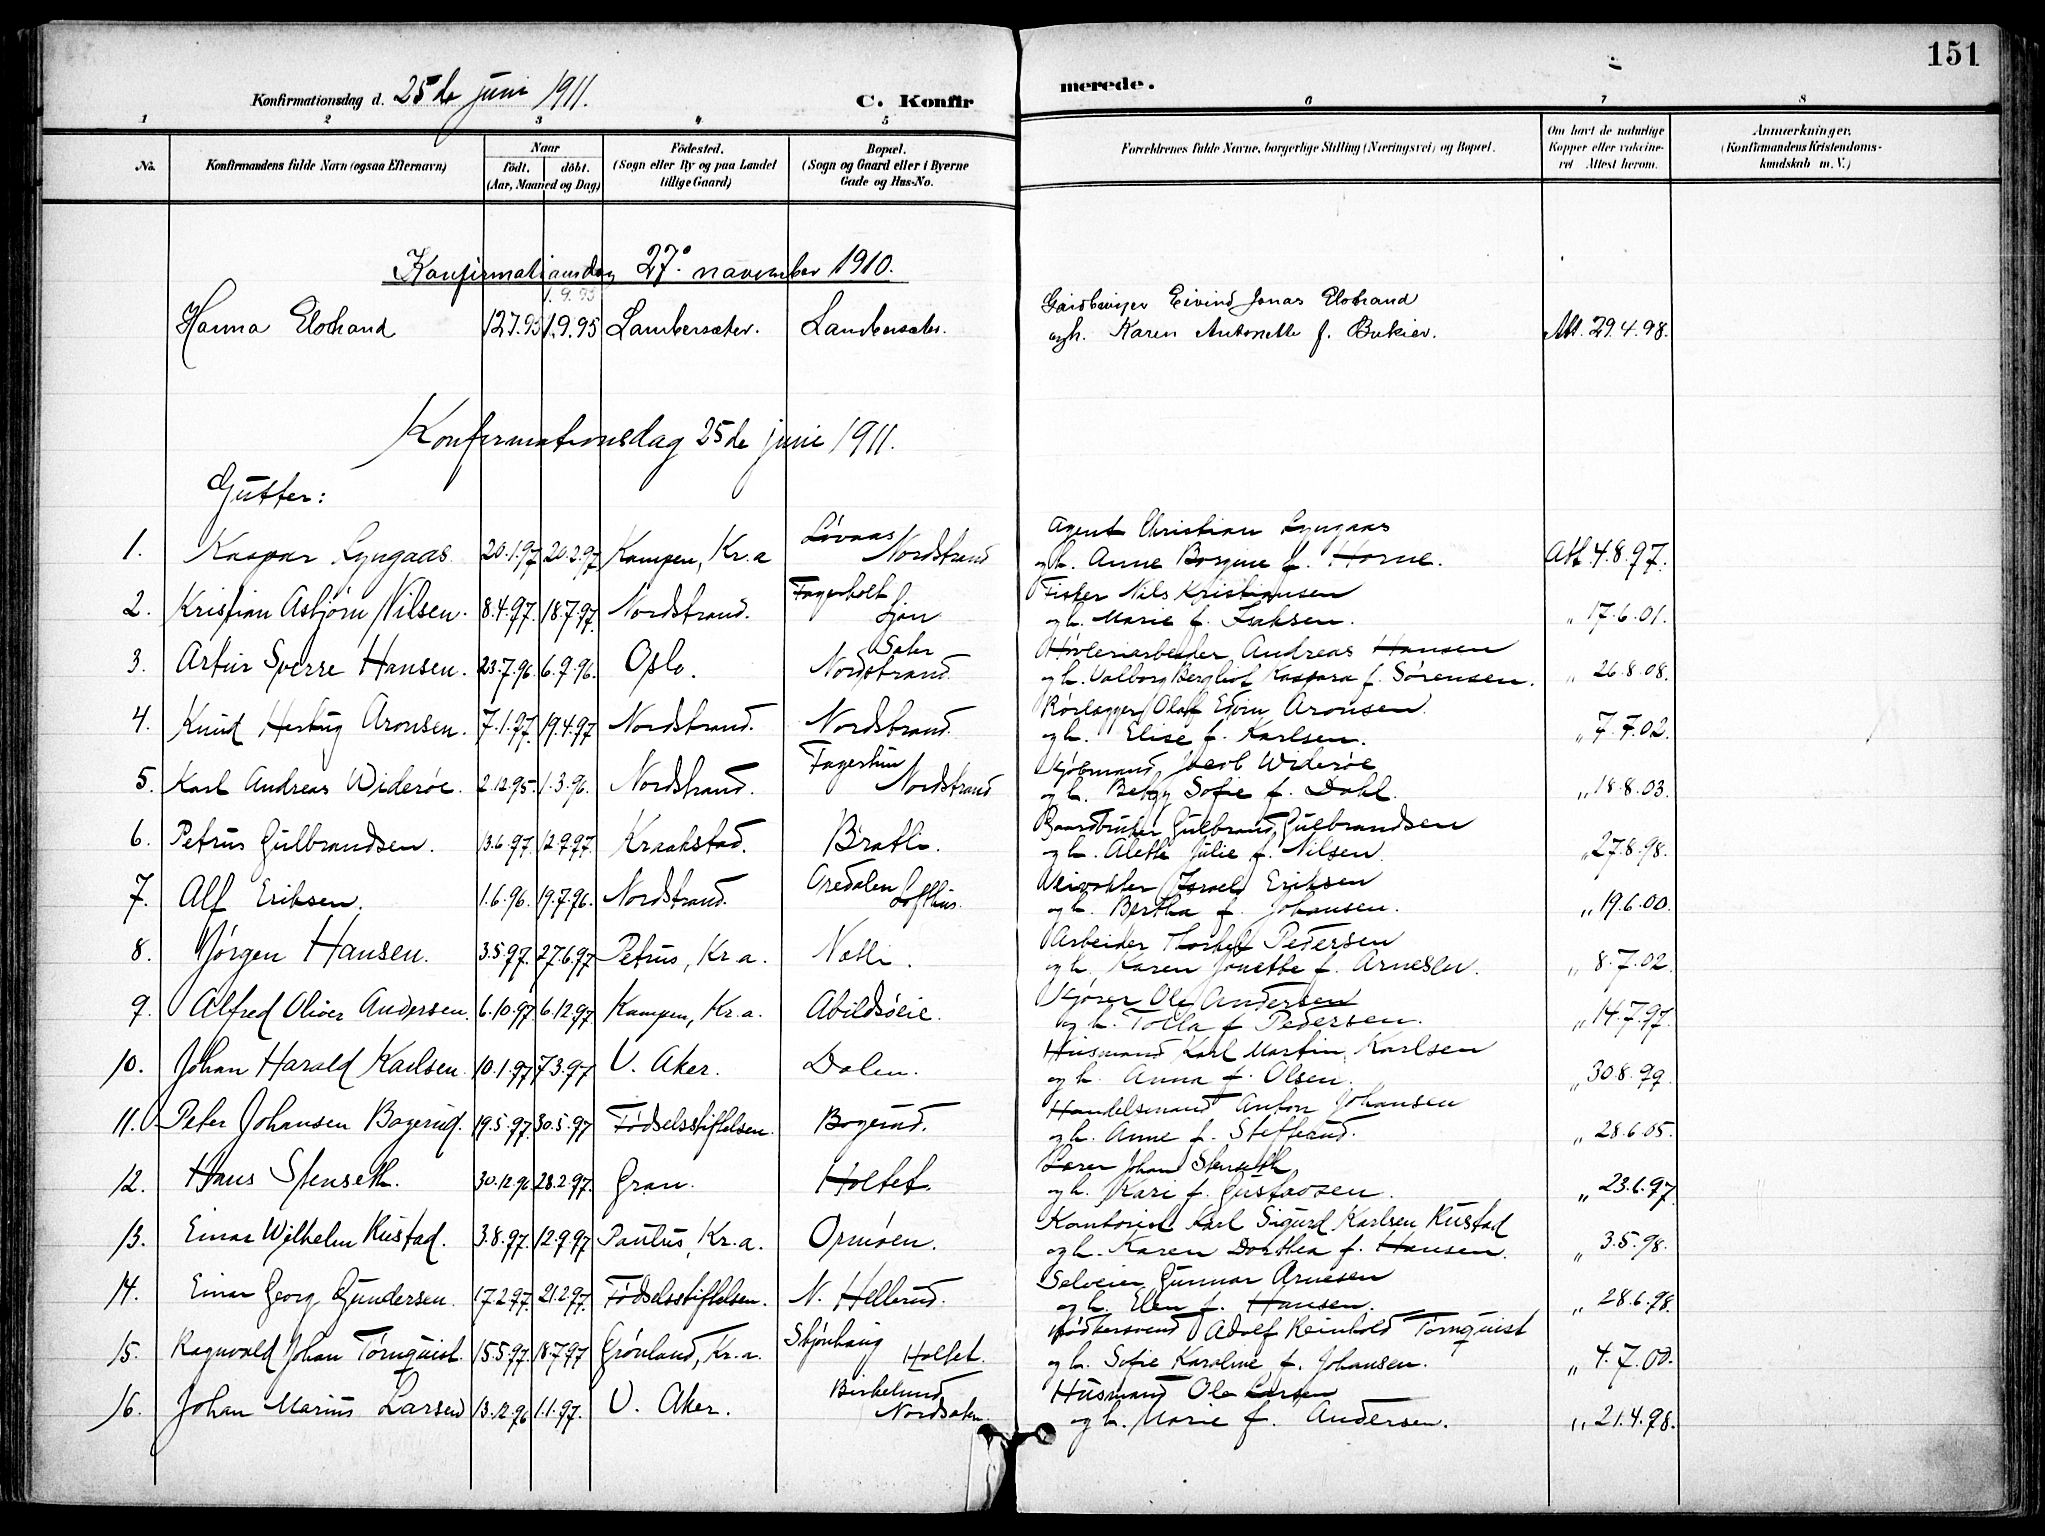 151
Konfirmationsdag d. 25de juni 1911. C. Konfir merede.
1 2 3 4 5 6 7 8
No. Konfirmandens fulde Navn (ogsaa Efternavn) Naar født. døbt. (Aar, Maaned og Dag) Fødested. (Sogn eller By og paa Landet tillige Gaard) Bopæl. (Sogn og Gaard eller i Byerne Gade og Hus-No. Forældrenes fulde Navne, borgerlige Stilling (Næringsvei) og Bopæl. Om havt de naturlige Kopper eller vakcineret. Attest herom. Anmærkninger. (Konfirmandens Kristendomskundskab m. V.)
Konfirmationsdag 27. november 1910.
1.9.95
Gaardbruger Eivind Jonas Elstrand
Hanna Elstrand 12.7.95 1.9.95 Lambersæter. Lambersæter. og h. Karen Antonette f. Att. 29.4.98.
Konfirmationsdag 25de juni 1911.
Gutter:
Løvaas Agent Christian Lyngaas
1. Kaspar Lyngaas 20.1.97 20.2.97 Kampen, Kr.a Nordstrand og h. Anne Borgine f. Horne. Att. 4.8.97.
Fagerholt Fisker Nils Kristiansen
2. Kristian Asbjørn Nilsen. 8.4.97. 18.7.97. Nordstrand. Ljan og h. Marie f. Isaksen. " 17.6.01.
Sæter Høvleriarbeider Andreas Hansen
3. Artur Sverre Hansen. 23.7.96. 6.9.96. Oslo. Nordstrand. og h. Valborg Bergliot Kaspara f. Sørensen. " 26.8.08.
Rørlægger Olaf Edvin Aronsen.
4. Knud Hertug Aronsen. 7.1.97. 19.4.97 Nordstrand. Nordstrand. og h. Elise f. Karlsen. " 7.7.02.
Fagertun Kjøbmand Jacob Widerøe
5. Karl Andreas Widerøe. 2.12.95. 1.3.96. Nordstrand. Nordstrand og h. Betzy Sofie f. Dahl. " 18.8.03.
Gaardbruker Gulbrand Gulbrandsen
6. Petrus Gulbrandsen. 13.6.97. 12.9.97. Kraakstad. Bratli. og h. Alette Julie f. Nilsen. " 27.8.98.
Aredalen Veivokter Israel Eriksen
7. Alf Eriksen. 1.6.96. 19.7.96. Nordstrand. Lofthus. og h. Bertha f. Johansen. " 19.6.00.
Arbeider Thorkel Pedersen
8. Jørgen Hansen. 3.5.97. 27.6.97 Petrus, Kr.a. Nøtli. og h. Karen Jonette f. Arnesen. " 8.7.02.
Kjører Ole Andersen
9. Alfred Oliver Andersen. 6.10.97 6.12.97. Kampen, Kr.a. Abildsøeie. og h. Tolla f. Pedersen. " 14.7.97.
Husmand Karl Martin Karlsen
10. Johan Harald Karlsen. 10.1.97 7.3.97 V. Aker. Dalen. og h. Anna f. Olsen. " 30.8.99.
Handelsmand Anton Johansen
11. Peter Johansen Bogerud. 19.5.97. 30.5.97 Fødselsstiftelsen. Bogerud. og h. Anne f. Stefferud. " 28.6.05.
Lærer Johan Stenseth
12. Hans Stenseth. 30.12.96 28.2.97. Gran. Holtet. og h. Kari f. Gustavsen. " 23.6.97
Kontorist Karl Sigurd Karlsen Rustad
13. Einar Wilhelm Rustad. 3.8.97. 12.9.97 Paulus, Kr.a. Ormøen. og h. Karen Dorthea f. Hansen. " 3.5.98.
Selveier Gunnar Arnesen
14. Einar Georg Gundersen. 17.2.97. 21.2.97. Fødselsstiftelsen. N. Hellerud. og h. Elen f. Hansen. " 28.6.98.
Skjønhaug Bødkersvend Adolf Reinhold Tørnquist
15. Ragnvald Johan Tørnquist. 15.5.97. 18.7.97 Grønland, Kr.a. Holtet. og h. Sofie Karoline f. Johansen. " 4.7.00.
Birkelund Husmand Ole Larsen
16. Johan Marius Larsen 13.12.96 1.1.97. V. Aker. Nordsæter og h. Marie f. Andersen. " 21.4.98.